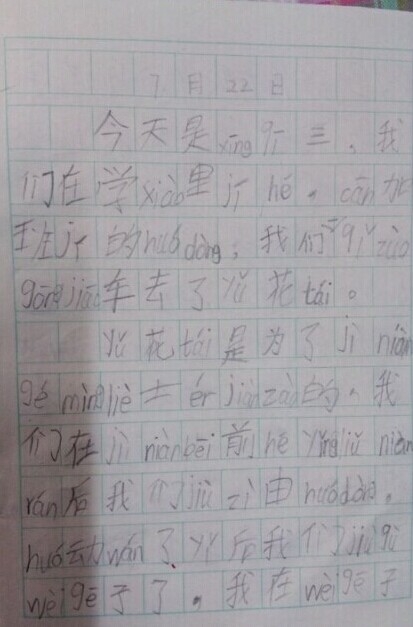 7月22日
今天是xīng qī三,我
们在学xiào里jí hé。cān加
班jí的huó dòng,我们qǐ zuò
gōng jiāo车去了yǔ花tái。
yǔ花tái是为了jì niàn
gé mìng liè士ér jiàn zào的。我
们在jì niàn bēi前hé yǐng liú niàn
rán后我们jiù zì由huó dòng。
huó动wán了yǐ后我们jiù qù
wèi gē子了。我在wèi gē子